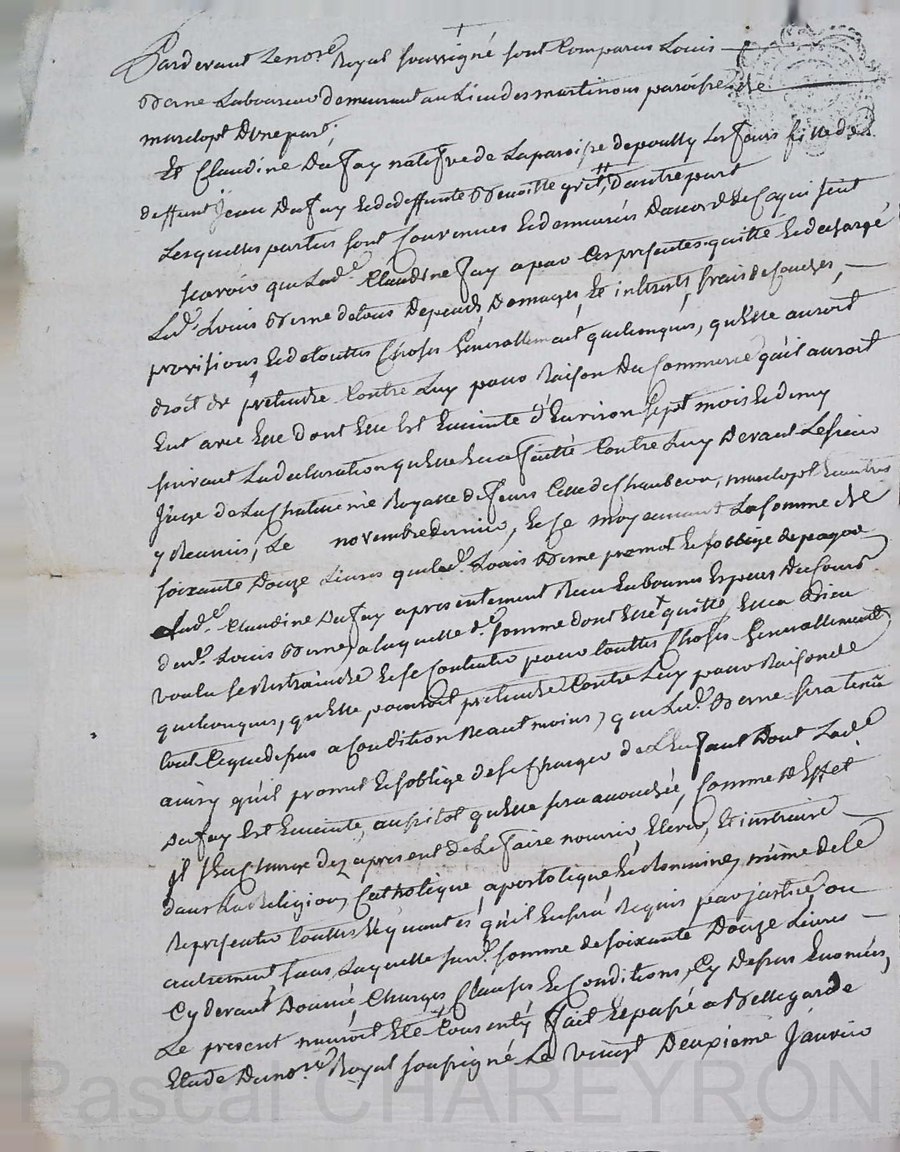 Pardevant Le no.re Royal soussigné sont Comparus Louis
Berne Laboureur demeurant au Lieu des martinous paroisse de
marclopt D'une part;
Et Claudine Dufay natifve de La paroisse de pouilly Les feurs fille de
deffunt Jean Dufay Et de deffunte D'autre part
Lesquelles parties sont Convenues Et demeurées D'accord de Ce qui suit
scavoir que Lad.e Claudine fay a par Ces presentes quitté Et dechargé
Led. Louis Berne de tous Depends, Domages, Et interests, frais de Couches,
provisions, Et de touttes Choses Generallement quelconques, qu'Elle auroit
droit de pretendre Contre Luy pour Raison Du Commerce qu'il auroit
Eut avec Elle dont Elle Est Enceinte d'Environ sept mois Et demy
suivant La declaration qu'Elle En a faitte Contre Luy Devant Le sieur
Juge de La Chatellenie Royalle de feurs Celle de marclopt Et autres
y Reunis, Le novembre dernier, Et Ce moyennant La somme de
soixante Douze Livres que Led. Louis Berne promet Et s'oblige de payer
Lad.e Claudine Dufay a presentement Reçu En bonnes Especes Du Cours
dud. Louis Berne, a laquelle d.e somme dont Elle quitte, Elle a bien
voulu se Restraindre Et se Contenter pour touttes Choses Generallement
quelconques, qu'Elle pourroit pretendre Contre Luy pour Raison de
tout Ce que dessus a Condition Neautmoins, que Led. Berne sera tenu
ainsy qu'il promet Et s'oblige de se Charger de L'Enfant Dont Lad.e
Dufay Est Enceinte, aussitot qu'Elle sera accouchée, Comme de Effet
il s'En Charge dez a present de Le faire nourrir, Elever, Et instruire
dans La Religion Catholique, apostolique Et Romaine, même de Le
Representer touttes Et quantes qu'il En sera Requis par justice, ou
autrement, sans Laquelle somme de soixante Douze Livres
Cy devant Donné, Charges Clauses Et Conditions, Cy Dessus Enoncées,
Le present n'auroit Eté Consenty, fait Et passé a Bellegarde
Etude Du no.re Royal soussigné Le vingt Deuxieme Janvier
Pascal CHAREYRON